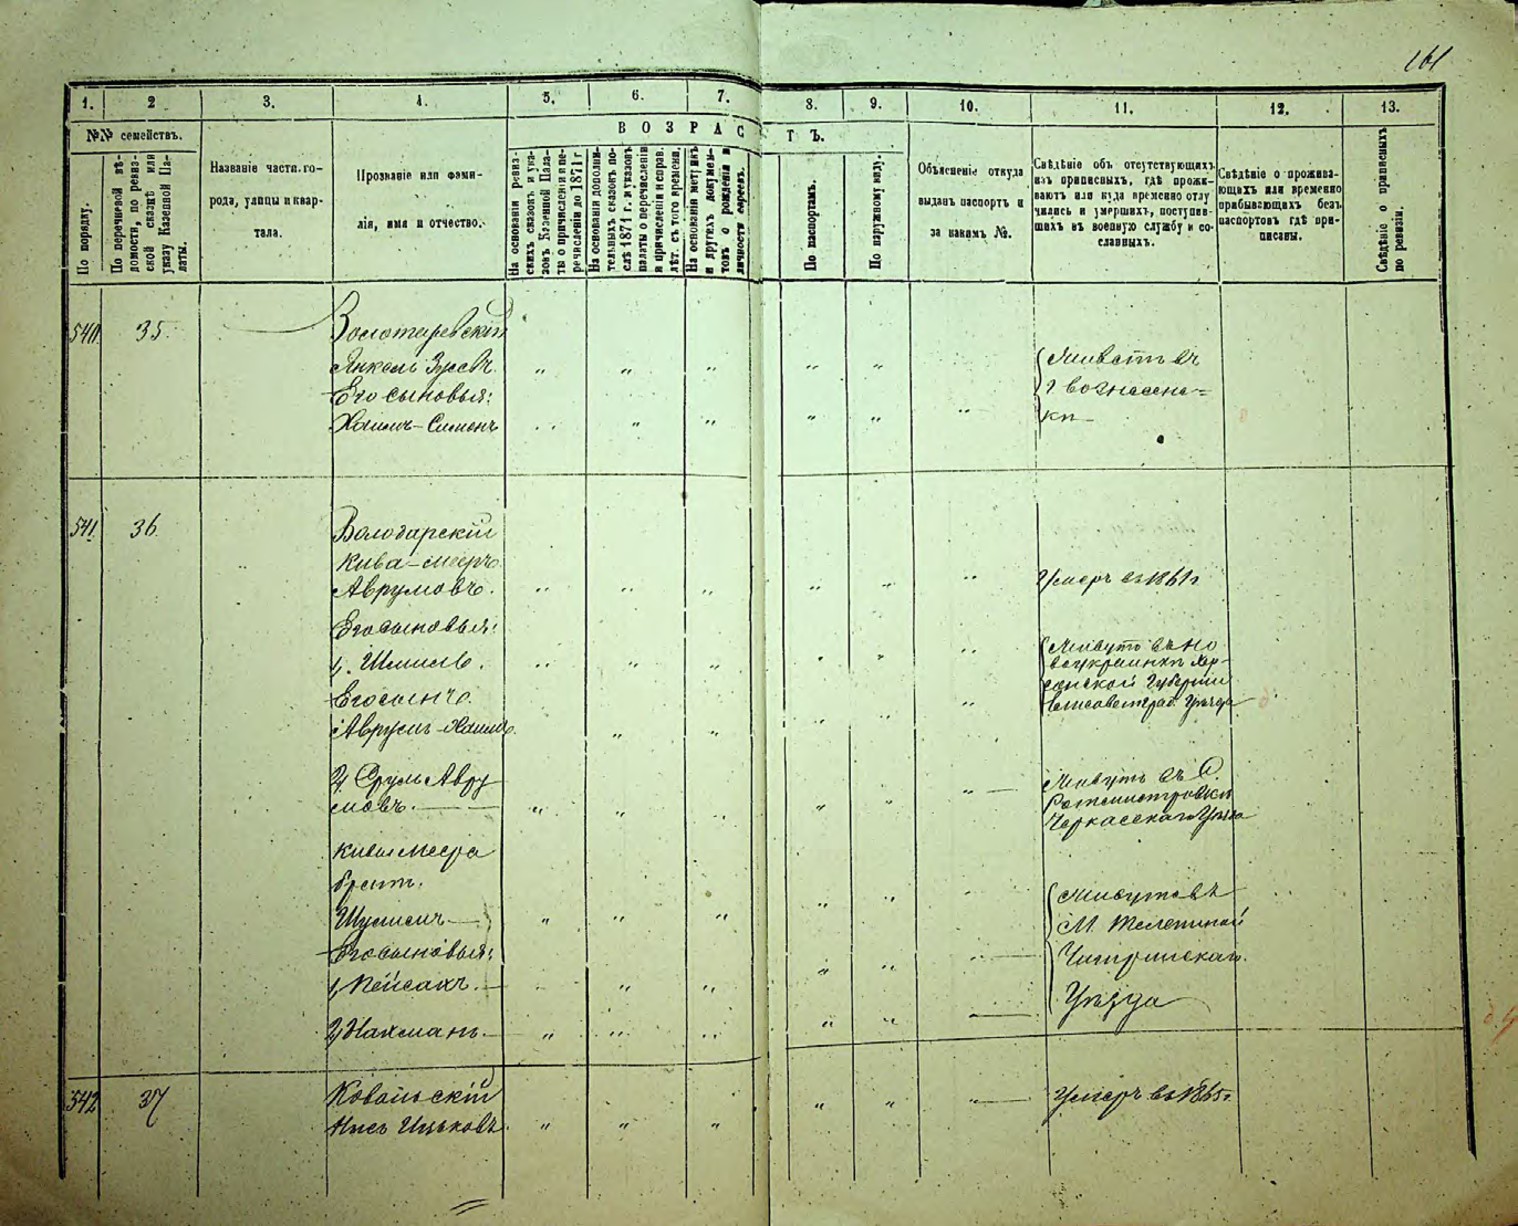 161
1. 2 3. 4. 5. 6. 7. 8. 9. 10. 11. 12. 13.
№№ семействъ.
ВОЗРАСТЪ.
По порядку.
По перечневой вѣ-
домости, по ревиз-
ской сказкѣ или
указу Казенной Па-
латы.
Названіе части, го-
рода, улицы и квар-
тала.
Прозваніе или фами-
лія, имя и отчество.
На основаніи ревиз-
скихъ сказокъ и ука-
зовъ Казенной Пала-
ты о причисленіи и пе-
речисленіи до 1871 г
На основаніи дополни-
тельныхъ сказокъ по-
слѣ 1871 г. и указовъ
палаты о перечисленіи
и причисленіи и справ.
лѣт. съ того времени.
На основаніи метрикъ
и другихъ докумен-
товъ о рожденіи и
личности евреевъ.
По паспортамъ.
По наружному виду.
Объясненіе откуда
выданъ паспортъ и
за какимъ №.
Свѣдѣніе объ отсутствующихъ
изъ приписныхъ, гдѣ прожи-
ваютъ или куда временно отлу
чились и умершихъ, поступив-
шихъ въ военную службу и со-
сланныхъ.
Свѣдѣніе о прожива-
ющихъ или временно
прибывающихъ безъ
паспортовъ гдѣ при-
писаны.
Свѣдѣніе о приписныхъ
по ревизіи.
540. 35. Золотаревскій
Янкель Зусевъ
Его сыновья:
Хаимъ-Симонъ
Живетъ въ
г Вознесенс=
кѣ
541. 36. Володарскій
Кива-Мееръ
Аврумовъ.
Умеръ въ 1861 г
Его сыновья:
1, Шмиль.
Его сынъ.
Аврумъ-Хаимъ.
Живутъ въ Но
воукраинкѣ Хер-
сонской Губерніи
Елисаветград. Уѣзда
2, Срулъ Авру
мовъ.
Живутъ въ С.
Ротмистровкѣ
Черкасскаго Уѣзда
Кивы Меера
братъ.
Шулимъ
Его сыновья:
1, Пейсахъ.
2, Нахманъ.
Живутъ въ
М. Телепиной
Чигиринскаго.
Уѣзда
542 37 Ковальскій
Нисъ Ицьковъ.
Умеръ въ 1865 г.